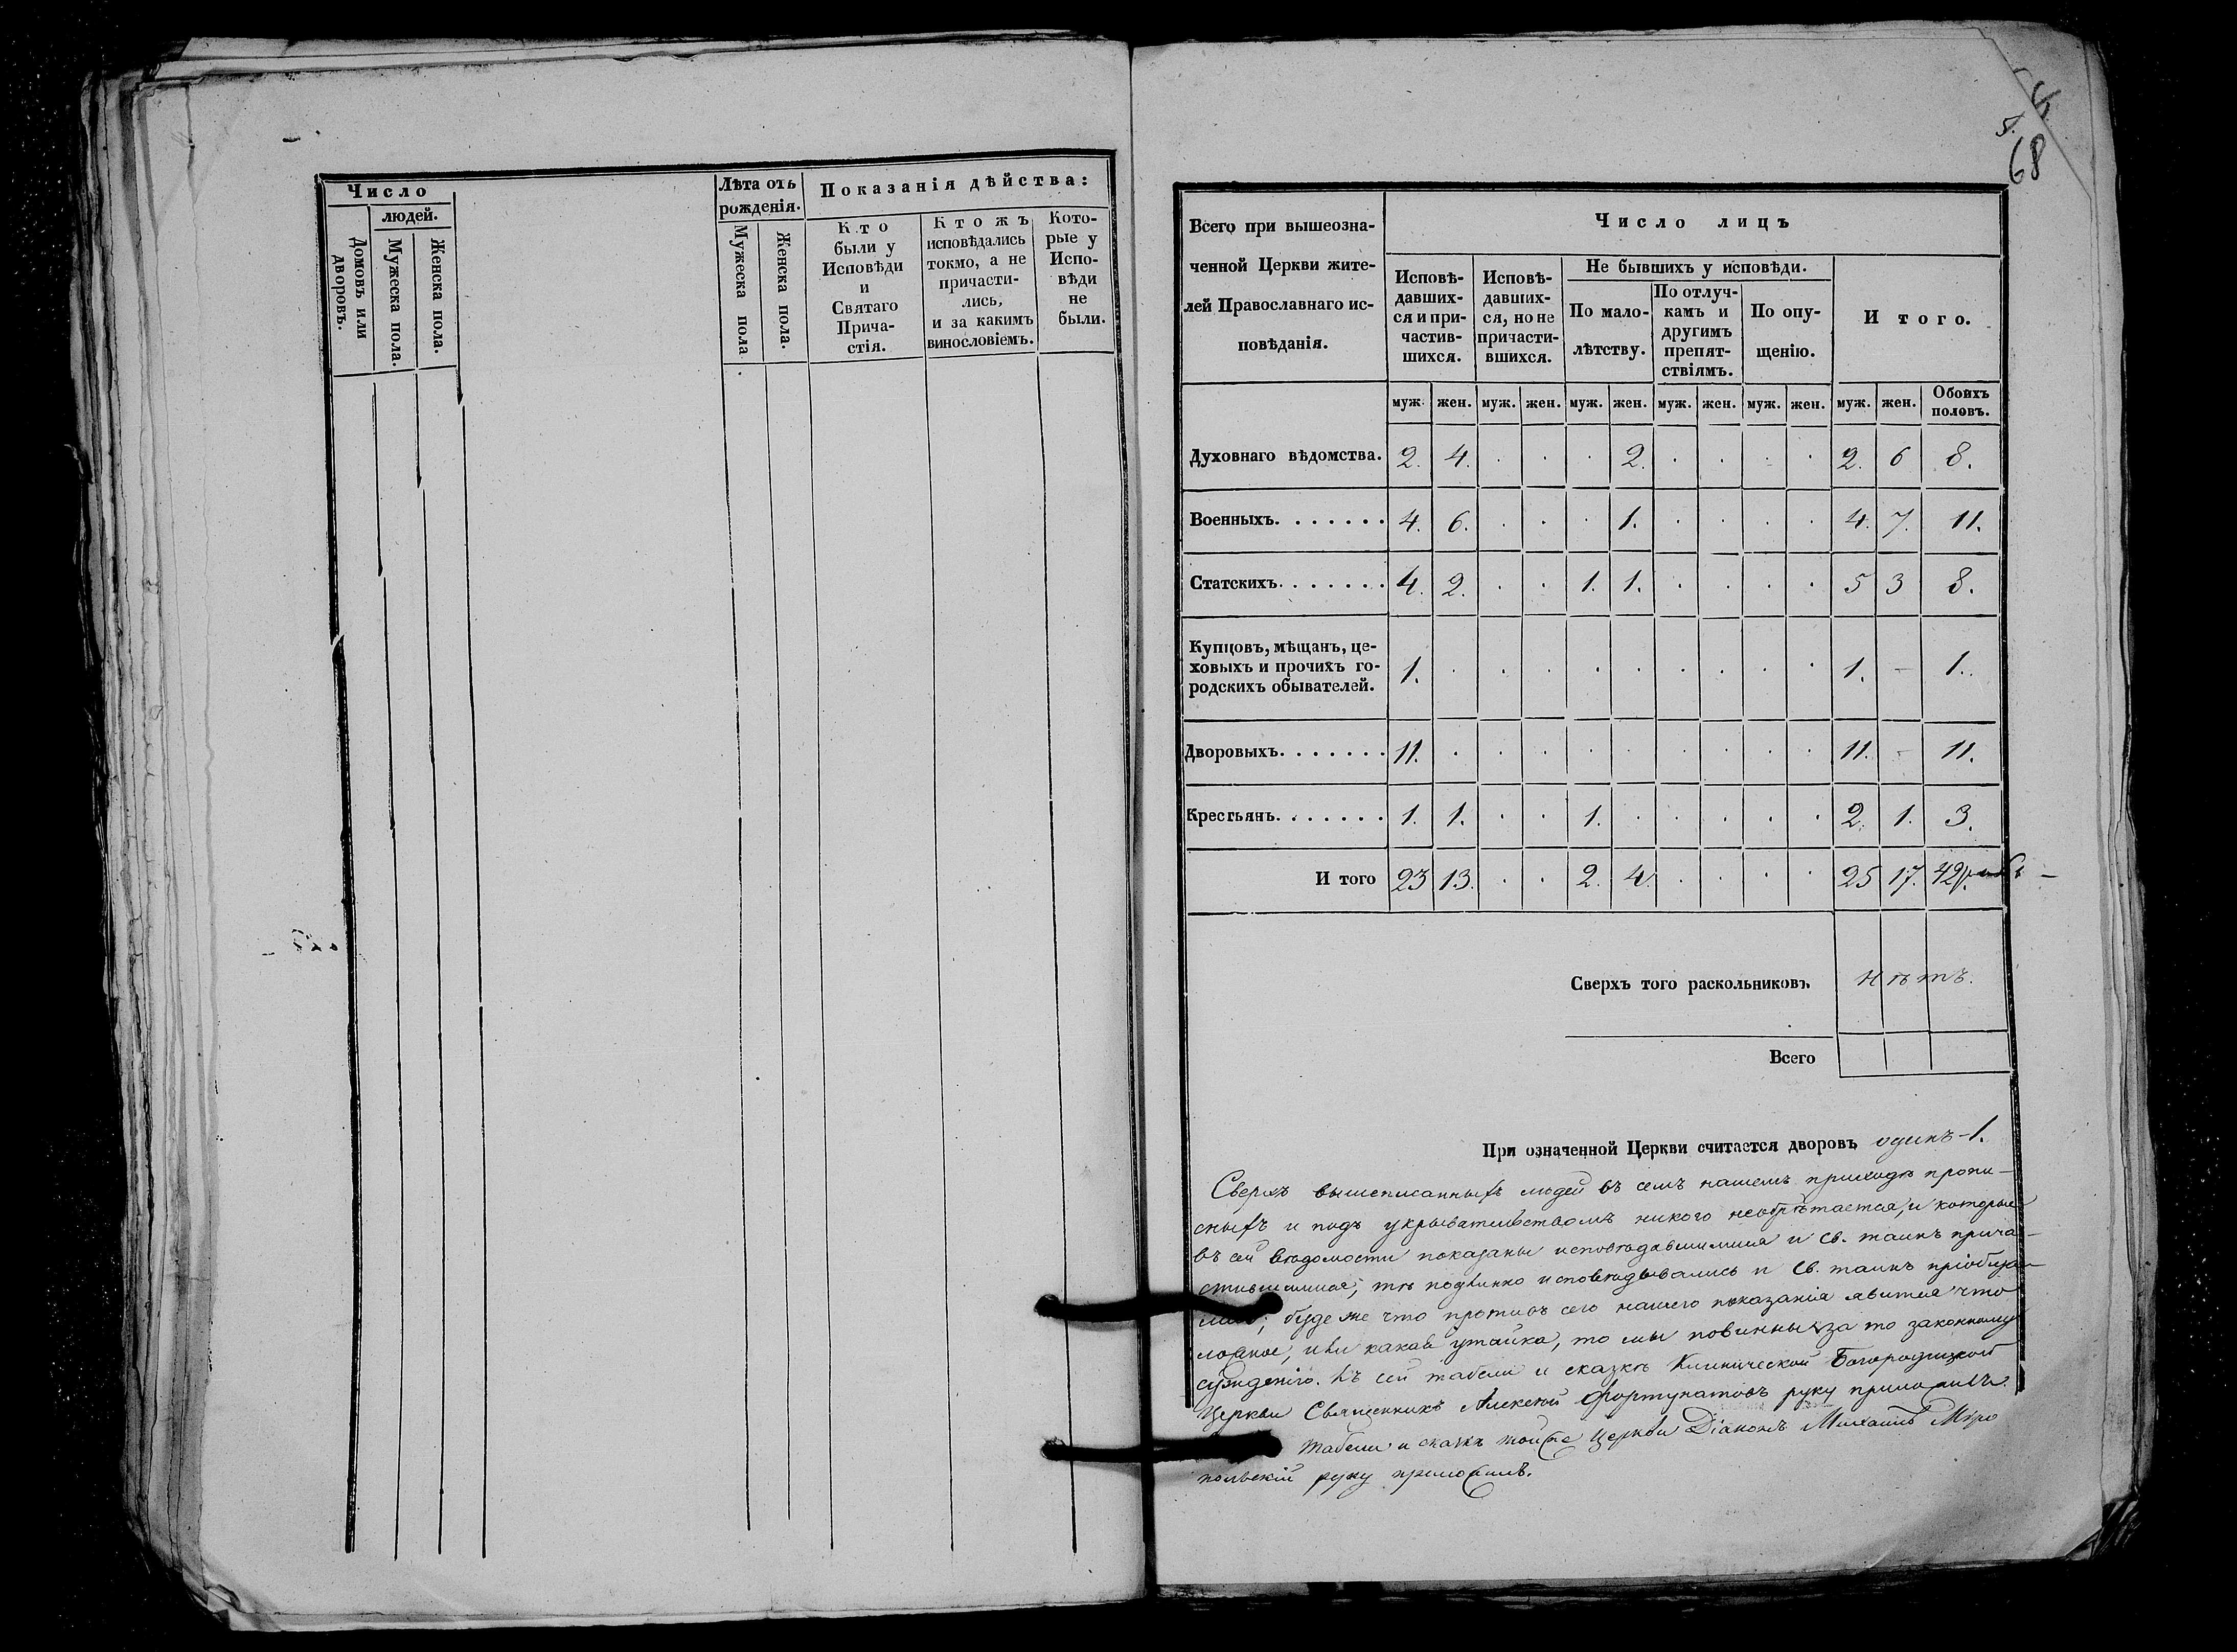 Число
людей.
Домовъ или дворовъ.
Мужеска пола.
Женска пола.
Лѣта отъ
рожденія.
Мужеска пола
Женска пола.
Показанія дѣйства:
Кто
были у
Исповѣди
и
Святаго
Прича-
стія.
Ктожъ
исповѣдались
токмо, а не
причасти-
лись,
и за какимъ
винословіемъ.
Кото-
рые у
Испо-
вѣди
не
были.
5.
68
Всего при вышеозна-
ченной Церкви жите-
лей Православнаго ис-
повѣданія.
Число лицъ
Исповѣ-
давших-
ся и при-
частив-
шихся.
Исповѣ-
давших-
ся, но не
причасти-
вшихся.
Не бывшихъ у исповѣди.
По мало-
лѣтству.
По отлуч-
камъ и
другимъ
препят-
ствіямъ.
По опу-
щенію.
И того.
муж. жен. муж. жен. муж. жен. муж. жен. муж. жен. муж. жен. Обоихъ половъ.
Духовнаго вѣдомства. 2. 4. . . . 2. . . . . 2. 6 8.
Военныхъ. . . . . . . 4. 6. . . . 1. . . . . 4. 7. 11.
Статскихъ. . . . . . . 4. 2. . . 1. 1. . . . . 5 3 8.
Купцовъ, мѣщанъ, це-
ховыхъ и прочихъ го-
родскихъ обывателей. 1. . . . . . . . . . 1. - 1.
Дворовыхъ. . . . . . . 11. . . . . . . . . . 11. - 11.
Крестьянъ. . . . . . . 1. 1. . . 1. . . . . . 2. 1. 3.
И того 23 13. . . 2. 4. . . . . 25 17. 42
Сверхъ того раскольниковъ нѣтъ.
Всего
При означенной Церкви считается дворовъ одинъ-1.
Сверхъ вышеписанныхъ людей въ семъ нашемъ приходѣ пропи-
сныхъ и подъ укрывательствомъ никого необрѣтается, и которые
въ сей вѣдомости показаны исповѣдавшимися и св. таинъ прича-
стившимися, тѣ подлинно исповѣдывались и св. таинъ пріобща-
лись; буде же что противъ сего нашего показанія явится что
ложное, или какая утайка, то мы повинны за то законному
сужденію. Къ сей табели и сказкѣ Клинической Богородицкой
Церкви Священникъ Алексѣй Фортунатовъ руку приложилъ.
табели и сказкѣ тойже Церкви Діаконъ Михаилъ Міро
польскій руку приложилъ.